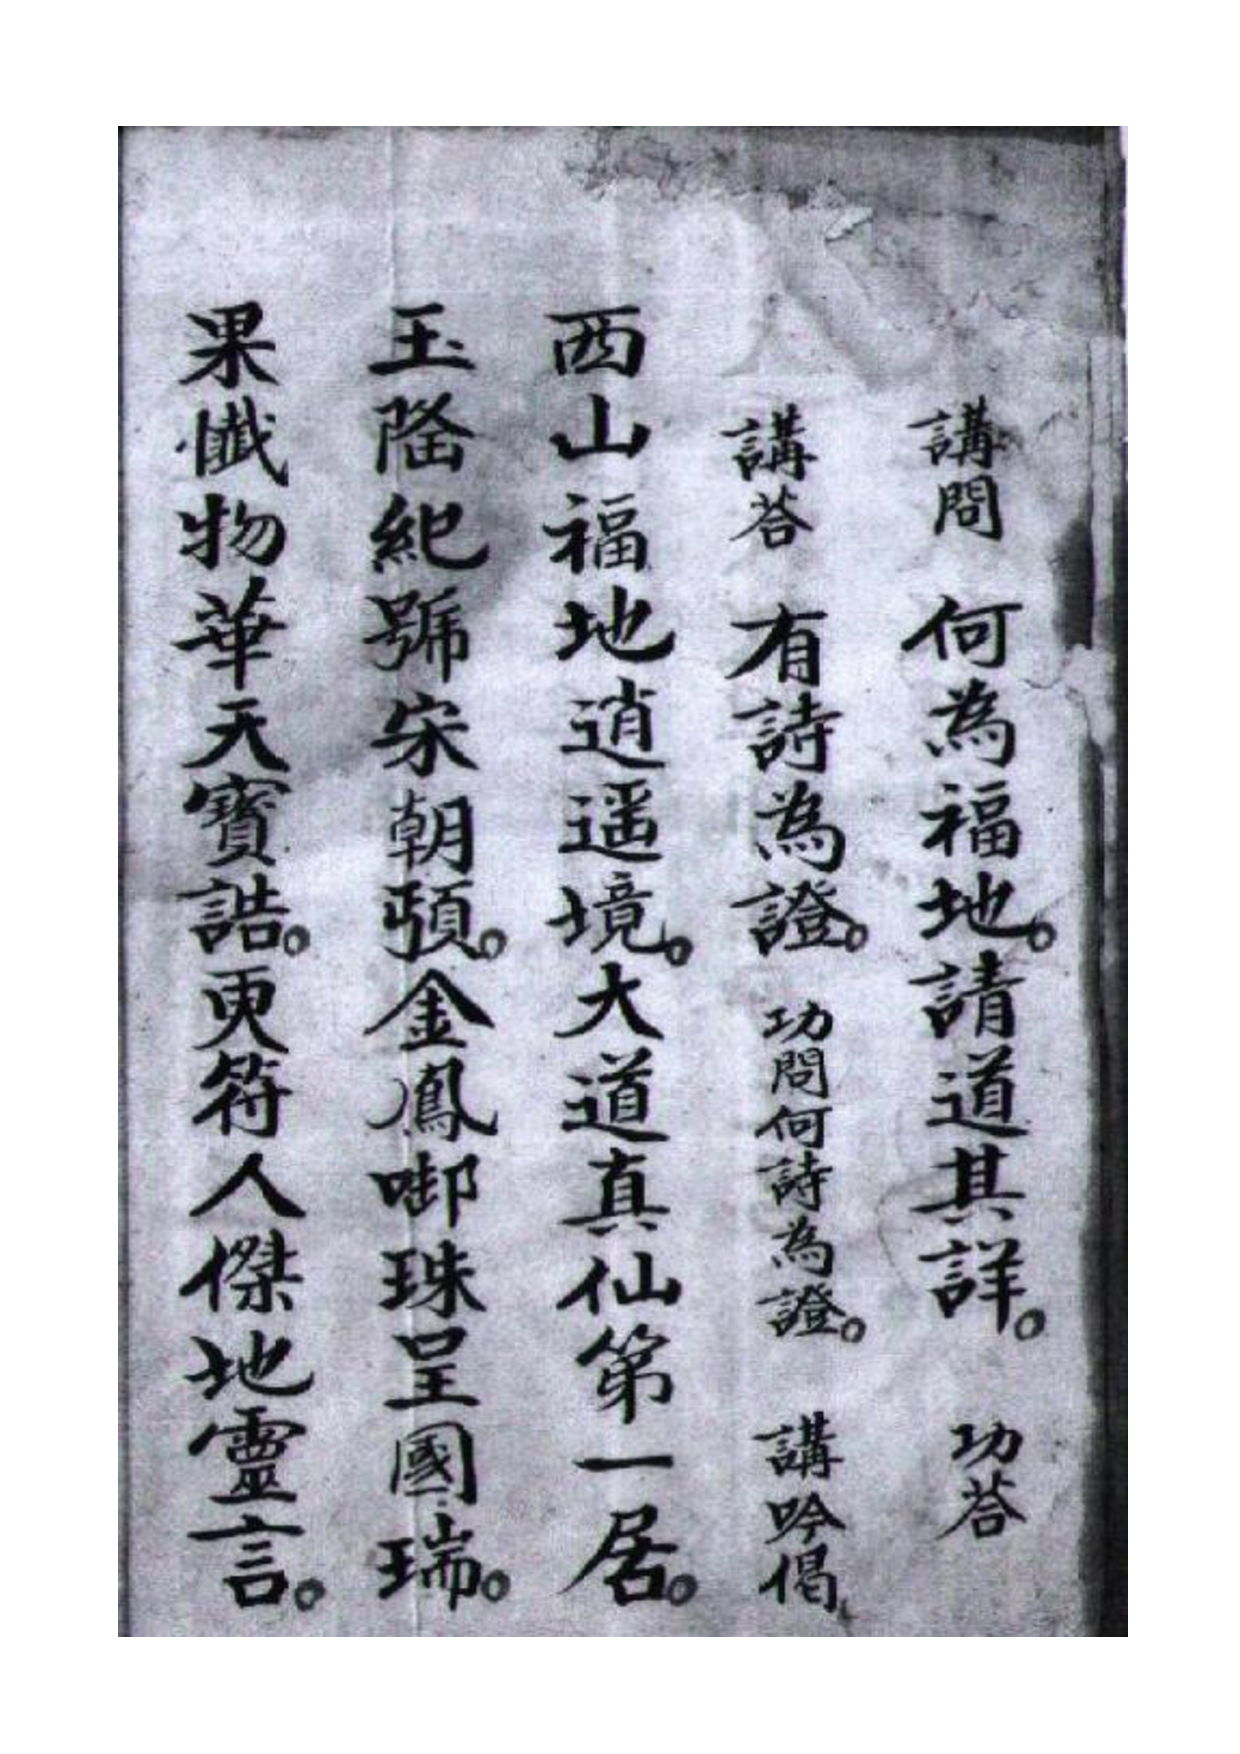 講問　何為福地。請道其詳。　功荅
講荅　有詩為證。　功問何詩為證。　講吟偈
西山福地逍遥境。大道真仙第一居。
玉隆紀號宋朝頒。金鳳啣珠呈國瑞。
果懺物華天寶誥。更符人傑地靈言。